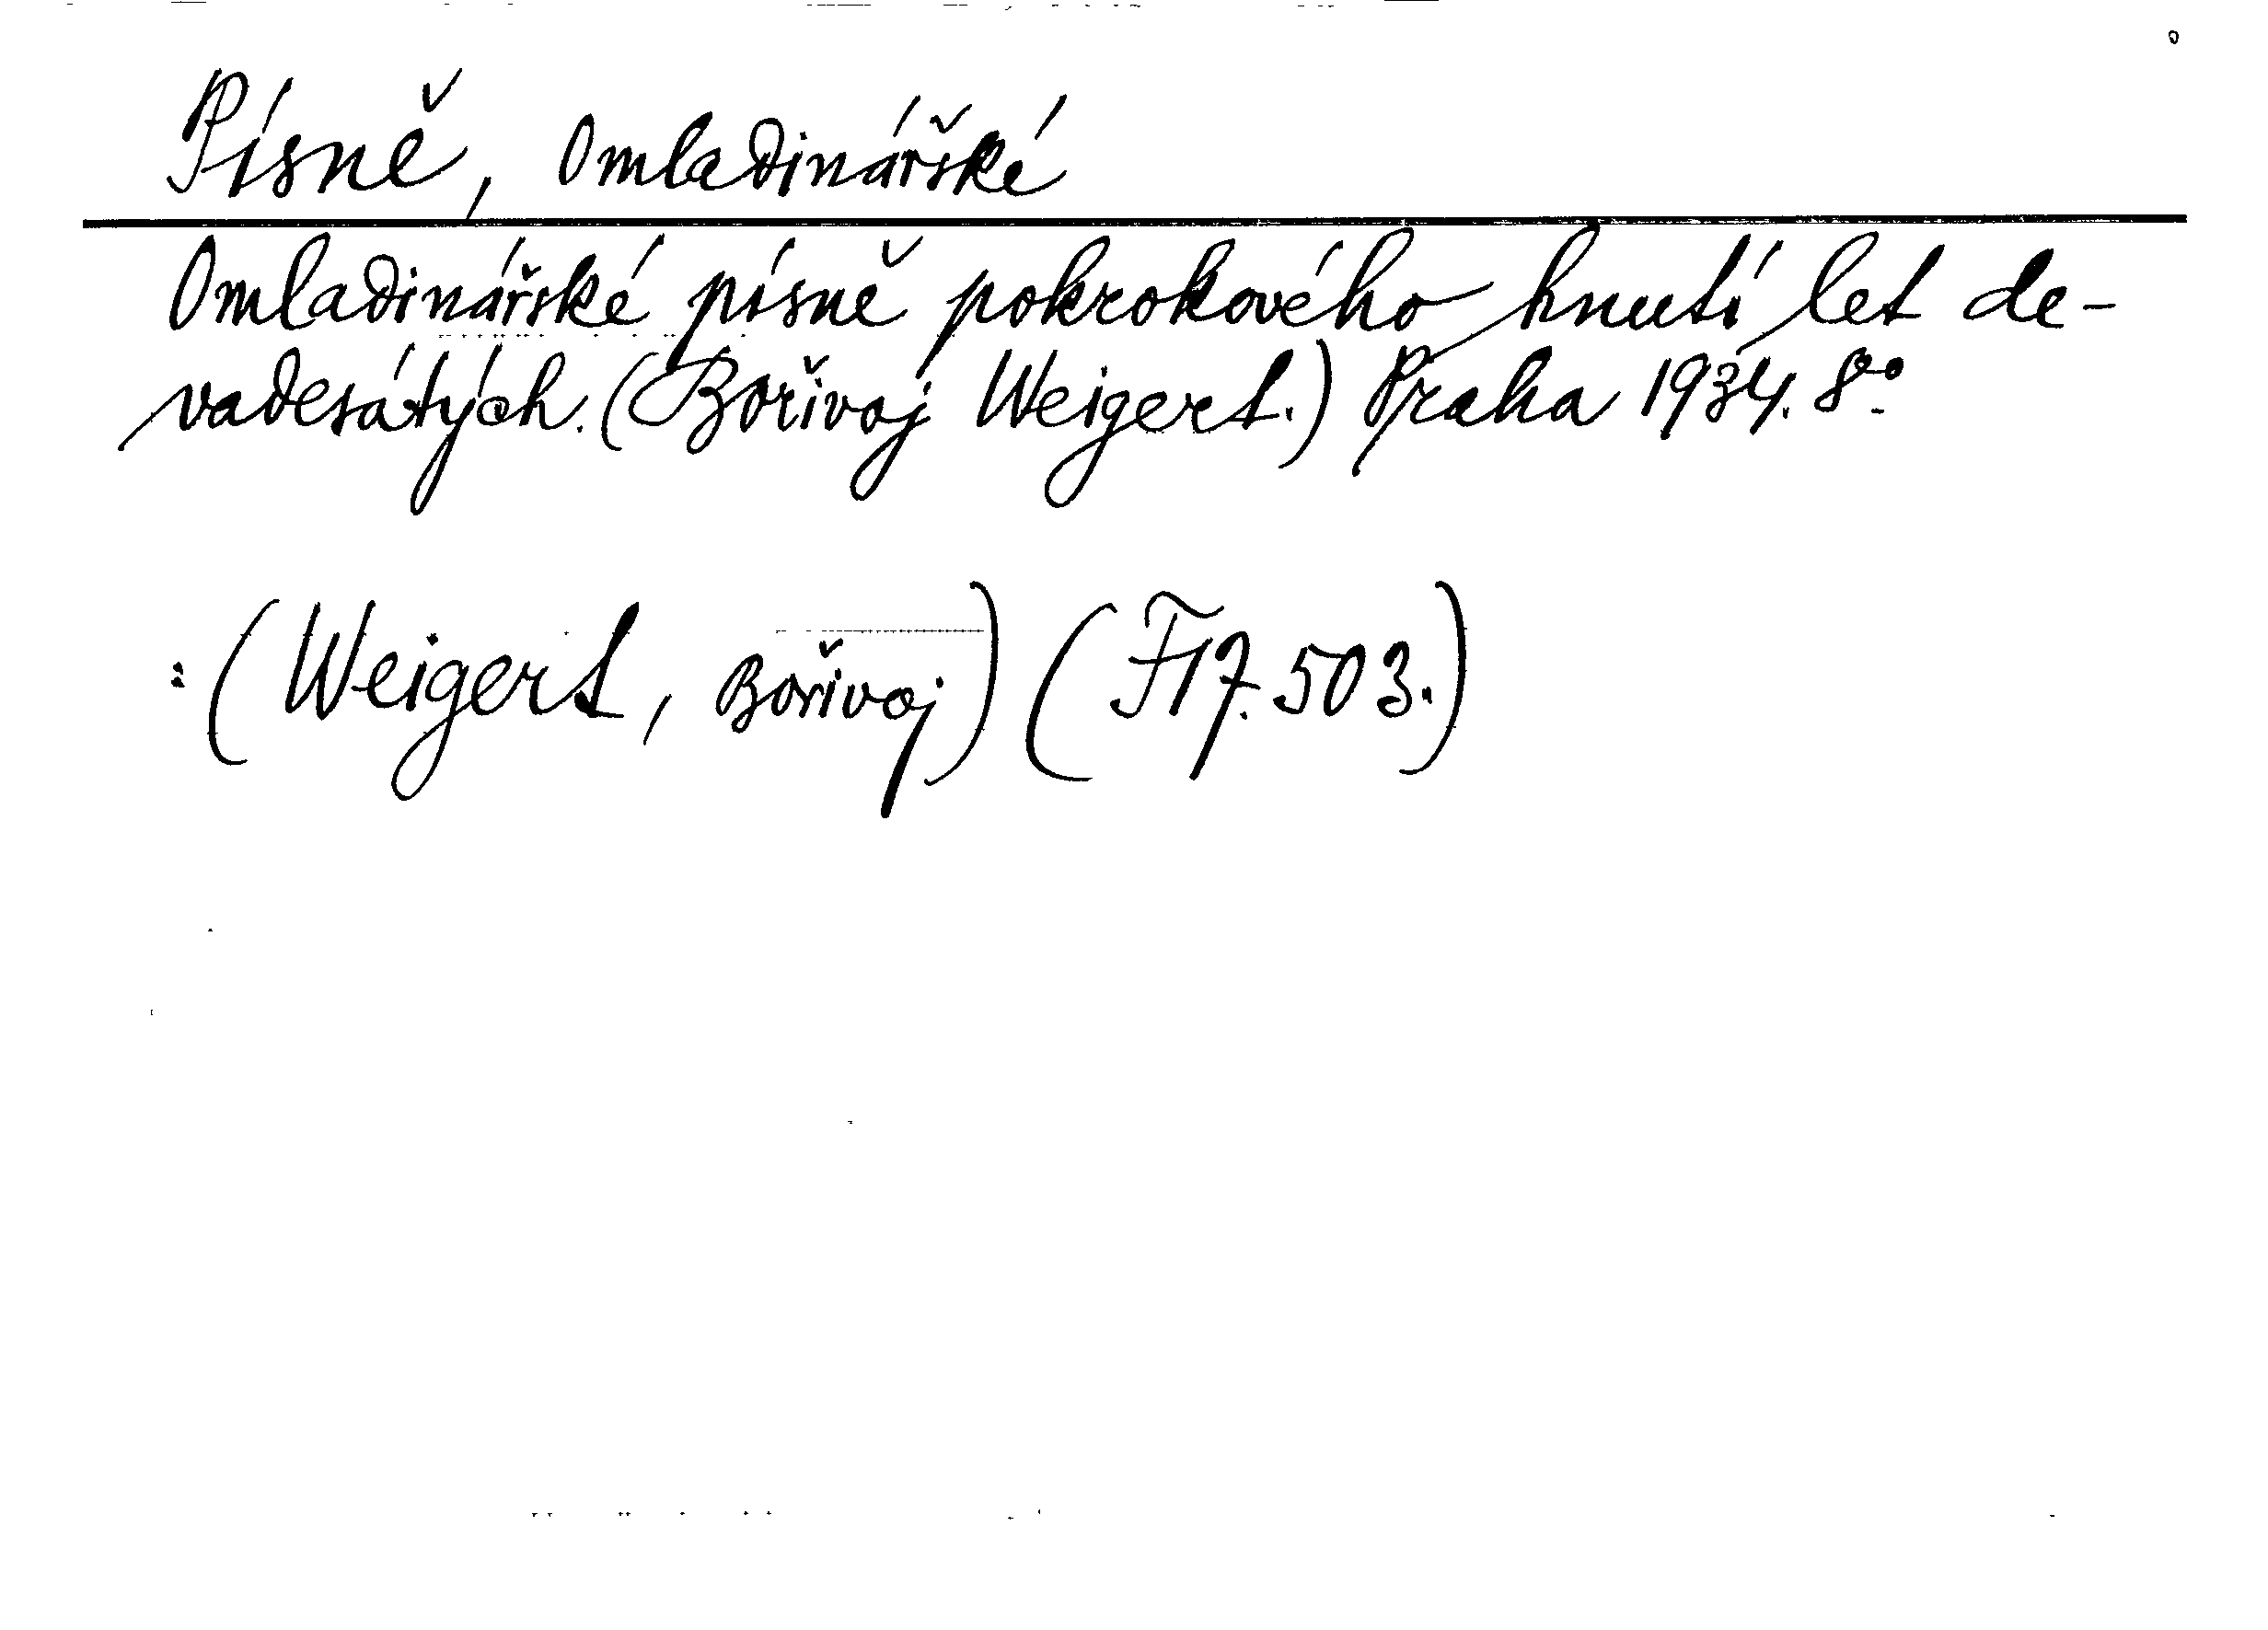 Písně, Omladinářské
Omladinářské písně pokrokového hnutí let de-
vadesátých. (Bořivoj Weigert.) Praha 1934. 8o.
: (Weigert, Bořivoj) (F17.503.)